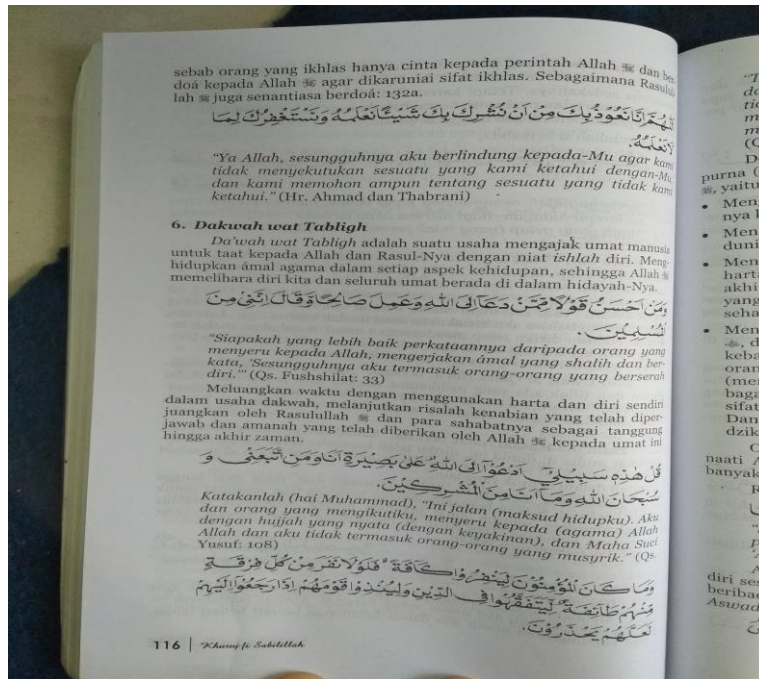 sebab orang yang ikhlas hanya cinta kepada perintah Allah ﷻ dan ber-
doá kepada Allah ﷻ agar dikaruniai sifat ikhlas. Sebagaimana Rasulul-
lah ﷺ juga senantiasa berdoá: 132a.
اَللّٰهُمَّ اِنَّا نَعُوْذُ بِكَ مِنْ اَنْ نُشْرِكَ بِكَ شَيْئًا نَعْلَمُهُ وَنَسْتَغْفِرُكَ لِمَا
لَا نَعْلَمُهُ.
"Ya Allah, sesungguhnya aku berlindung kepada-Mu agar kami
tidak menyekutukan sesuatu yang kami ketahui dengan-Mu,
dan kami memohon ampun tentang sesuatu yang tidak kami
ketahui." (Hr. Ahmad dan Thabrani)
6. Dakwah wat Tabligh
Da'wah wat Tabligh adalah suatu usaha mengajak umat manusia
untuk taat kepada Allah dan Rasul-Nya dengan niat ishlah diri. Meng-
hidupkan ámal agama dalam setiap aspek kehidupan, sehingga Allah ﷻ
memelihara diri kita dan seluruh umat berada di dalam hidayah-Nya.
وَمَنْ اَحْسَنُ قَوْلًا مِّمَّنْ دَعَآ اِلَى اللهِ وَعَمِلَ صَالِحًا وَّقَالَ اِنَّنِيْ مِنَ
الْمُسْلِمِيْنَ.
"Siapakah yang lebih baik perkataannya daripada orang yang
menyeru kepada Allah, mengerjakan ámal yang shalih dan ber-
kata, 'Sesungguhnya aku termasuk orang-orang yang berserah
diri.'" (Qs. Fushshilat: 33)
Meluangkan waktu dengan menggunakan harta dan diri sendiri
dalam usaha dakwah, melanjutkan risalah kenabian yang telah diper-
juangkan oleh Rasulullah ﷺ dan para sahabatnya sebagai tanggung
jawab dan amanah yang telah diberikan oleh Allah ﷻ kepada umat ini
hingga akhir zaman.
قُلْ هٰذِهٖ سَبِيْلِيْٓ اَدْعُوْٓا اِلَى اللهِ عَلٰى بَصِيْرَةٍ اَنَا وَمَنِ اتَّبَعَنِيْ وَ
سُبْحَانَ اللهِ وَمَآ اَنَا مِنَ الْمُشْرِكِيْنَ.
Katakanlah (hai Muhammad), "Ini jalan (maksud hidupku). Aku
dan orang yang mengikutiku, menyeru kepada (agama) Allah
dengan hujjah yang nyata (dengan keyakinan), dan Maha Suci
Allah dan aku tidak termasuk orang-orang yang musyrik." (Qs.
Yusuf: 108)
وَمَا كَانَ الْمُؤْمِنُوْنَ لِيَنْفِرُوْا كَآفَّةً فَلَوْلَا نَفَرَ مِنْ كُلِّ فِرْقَةٍ
مِّنْهُمْ طَآئِفَةٌ لِّيَتَفَقَّهُوْا فِى الدِّيْنِ وَلِيُنْذِرُوْا قَوْمَهُمْ اِذَا رَجَعُوْٓا اِلَيْهِمْ
لَعَلَّهُمْ يَحْذَرُوْنَ.
116 | Khuruj fi Sabilillah
purna (
, yaitu
nya k
duni
harta
akhi
yang
seha
keba
oran
(mer
baga
sifat
Dan
dzik
naati A
banyak
diri ses
beribad
Aswad